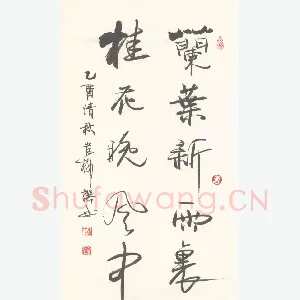 蘭葉新雨裏
桂花晚風中
乙酉清秋
Shufawang.CN